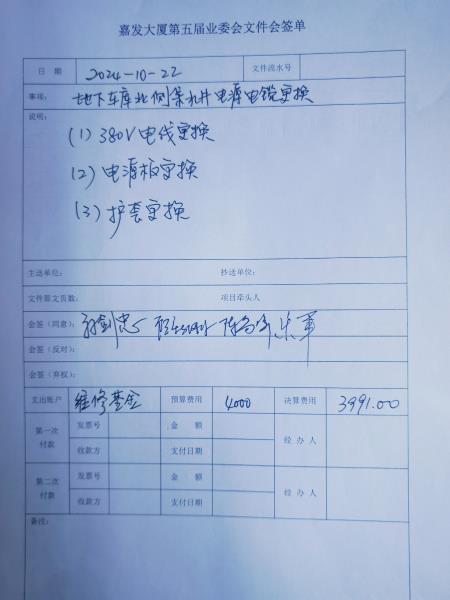 嘉发大厦第五届业委会文件会签单
日 期 2024-10-22 文件流水号
事项: 地下车库北侧集水井电源电缆更换
说明:
(1) 380V电线更换
(2) 电源板更换
(3) 护套更换
主送单位: 抄送单位:
文件跟文页数: 项目牵头人
会签(同意):
会签(反对):
会签(弃权):
支出账户 维修基金 预算费用 4000 决算费用 3991.00
第一次付款 发票号 金 额 经 办 人
收款方 支付日期
第二次付款 发票号 金 额 经 办 人
收款方 支付日期
备注: